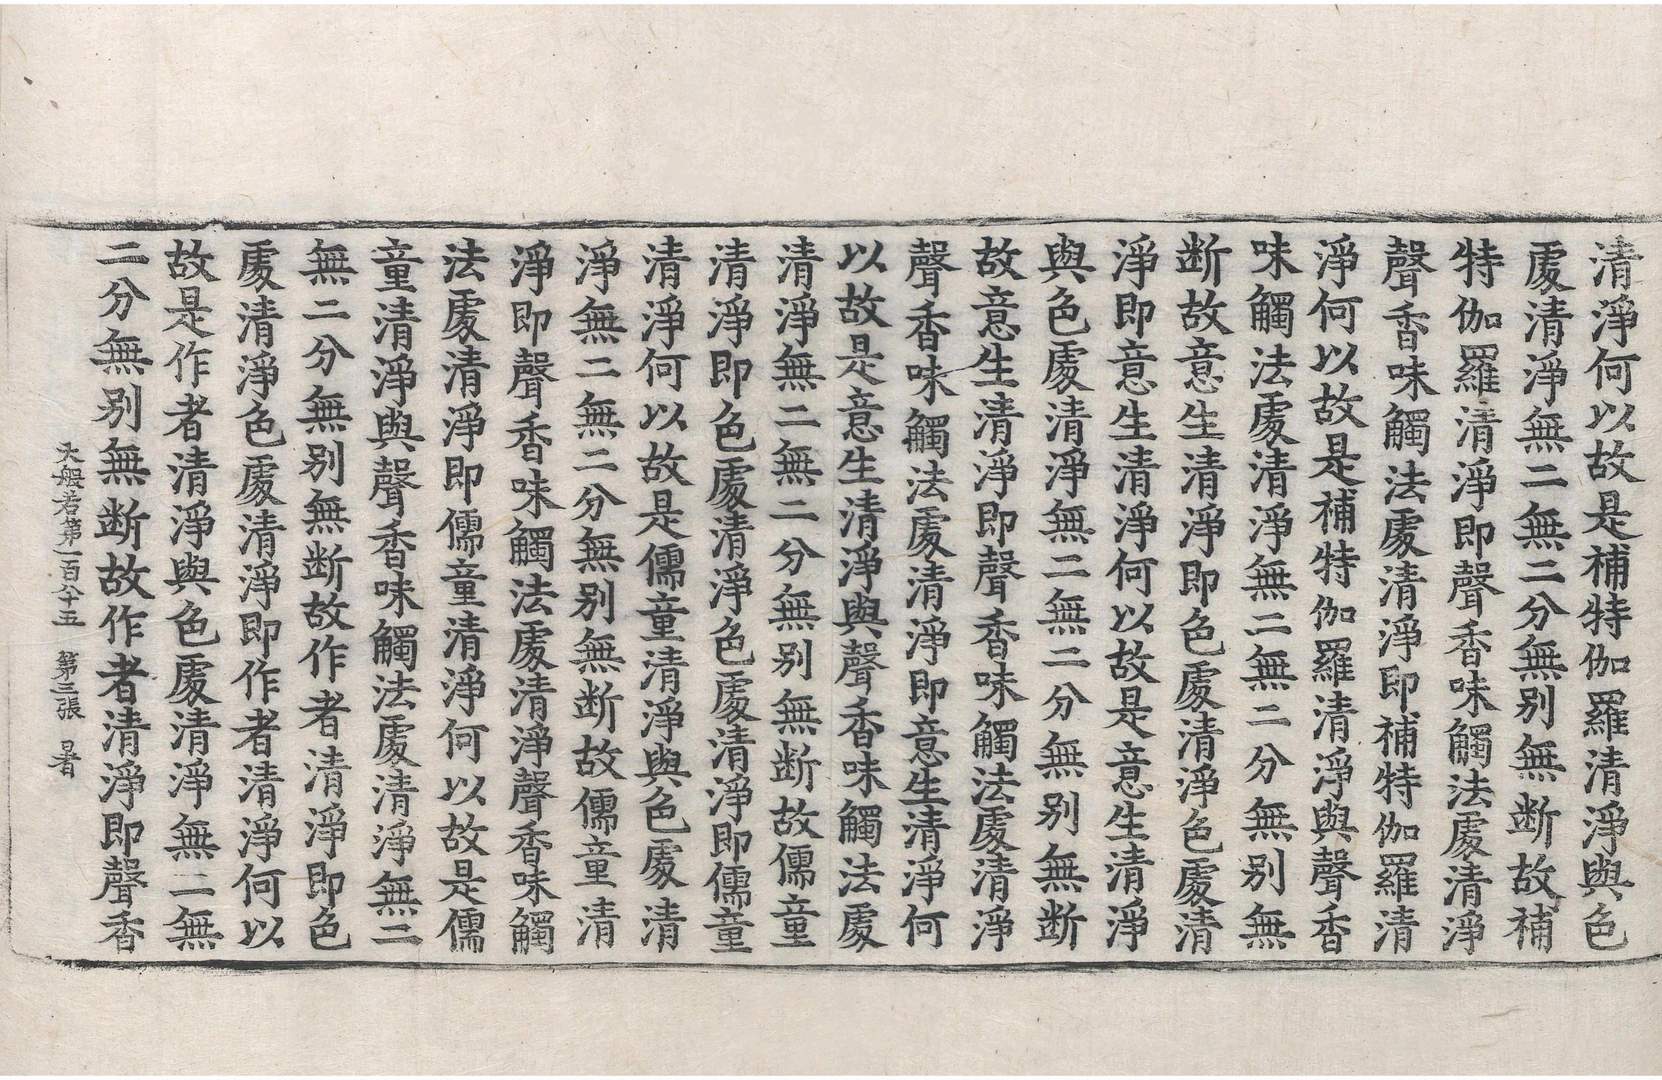 清淨何以故是補特伽羅清淨與色
處清淨無二無二分無别無断故補
特伽羅清淨即聲香味觸法處清淨
聲香味觸法處清淨即補特伽羅清
淨何以故是補特伽羅清淨與聲香
味觸法處清淨無二無二分無别無
断故意生清淨即色處清淨色處清
淨即意生清淨何以故是意生清淨
與色處清淨無二無二分無别無断
故意生清淨即聲香味觸法處清淨
聲香味觸法處清淨即意生清淨何
以故是意生清淨與聲香味觸法處
清淨無二無二分無别無断故儒童
清淨即色處清淨色處清淨即儒童
清淨何以故是儒童清淨與色處清
淨無二無二分無别無断故儒童清
淨即聲香味觸法處清淨聲香味觸
法處清淨即儒童清淨何以故是儒
童清淨與聲香味觸法處清淨無二
無二分無别無断故作者清淨即色
處清淨色處清淨即作者清淨何以
故是作者清淨與色處清淨無二無
二分無别無断故作者清淨即聲香
大般若第一百八十五 第三張 暑